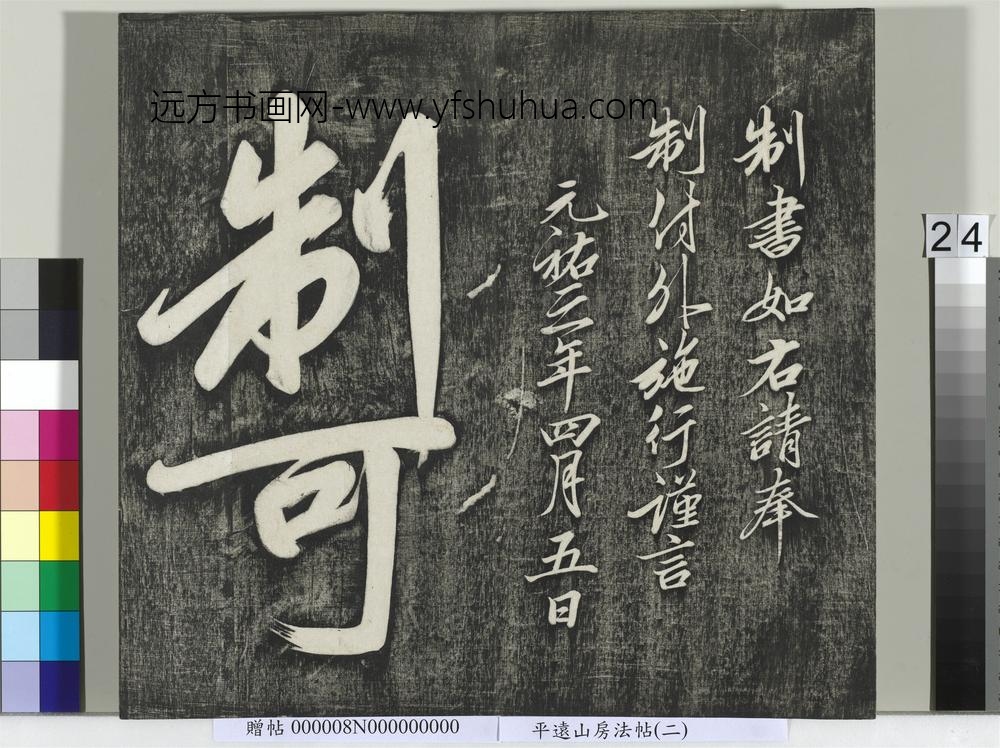 远方书画网-www.yfshuhua.com
制書如右請奉
制付外施行謹言
元祐三年四月五日
制可
24
贈帖 000008N000000000
平遠山房法帖(二)